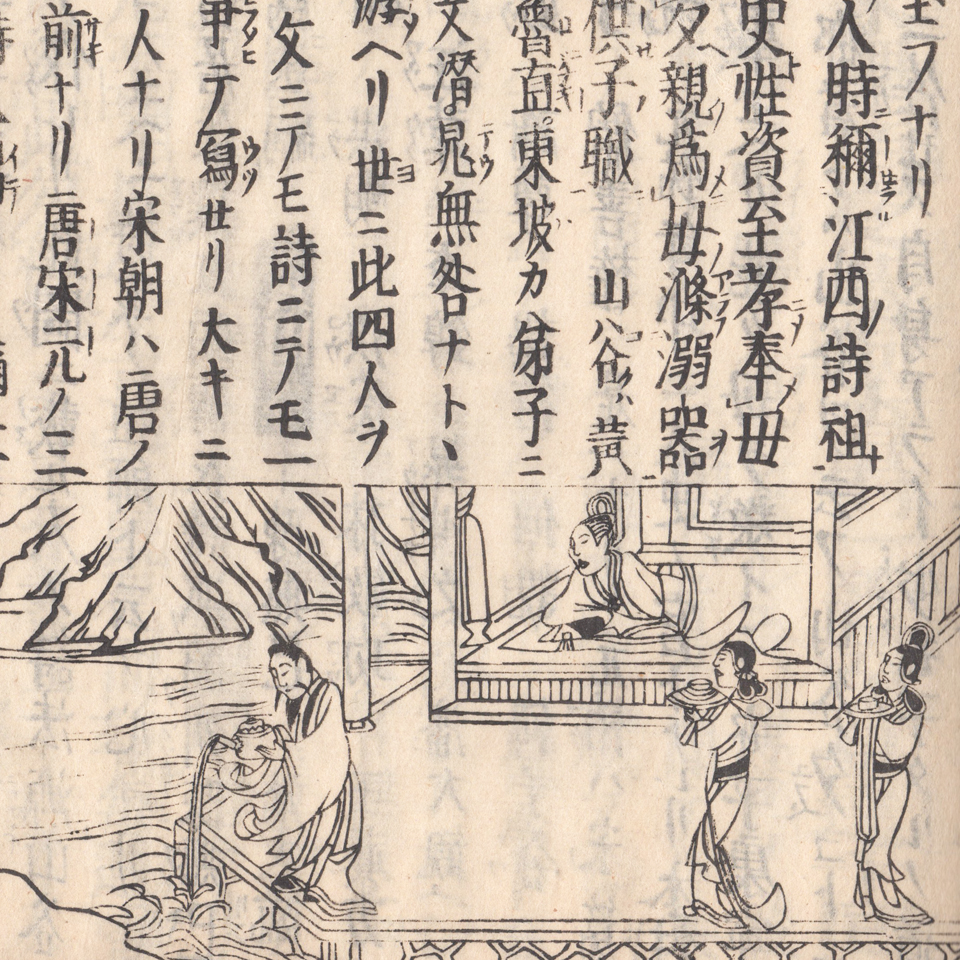 フナリ
人時稱江西詩祖
史性資至孝奉母
夕親爲母滌溺器
供子職 山谷ハ黄
魯直東坡カ弟子ニ
文潛晁無咎ナト丶
游ヘリ世ニ此四人ヲ
文ニテモ詩ニテモ一
爭テ寫セリ大キニ
人ナリ宋朝ハ唐ノ
前ナリ唐宋元ノ三